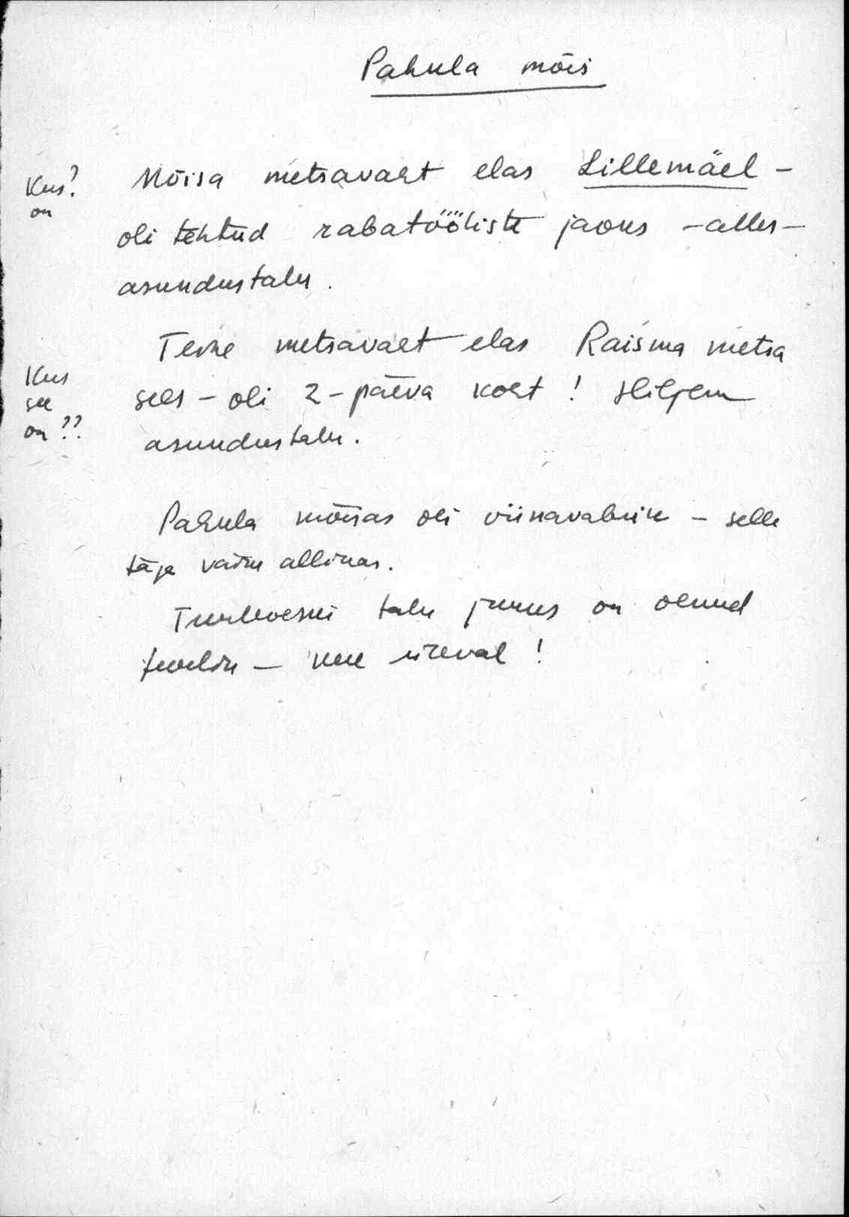 Pahula mõis
Kus?
on
Mõisa metsavaht elas Lillemäel -
oli tehtud rabatööliste jaoks - alles -
asundustalu.
Kus
see
on ??
Teine metsavaht elas Raisma metsa
sees - oli 2-päeva koht ! Hiljem
asundustalu.
Pahula mõisas oli viinavabrik - selle
taga allikas.
talu juures on olnud
- üleval !